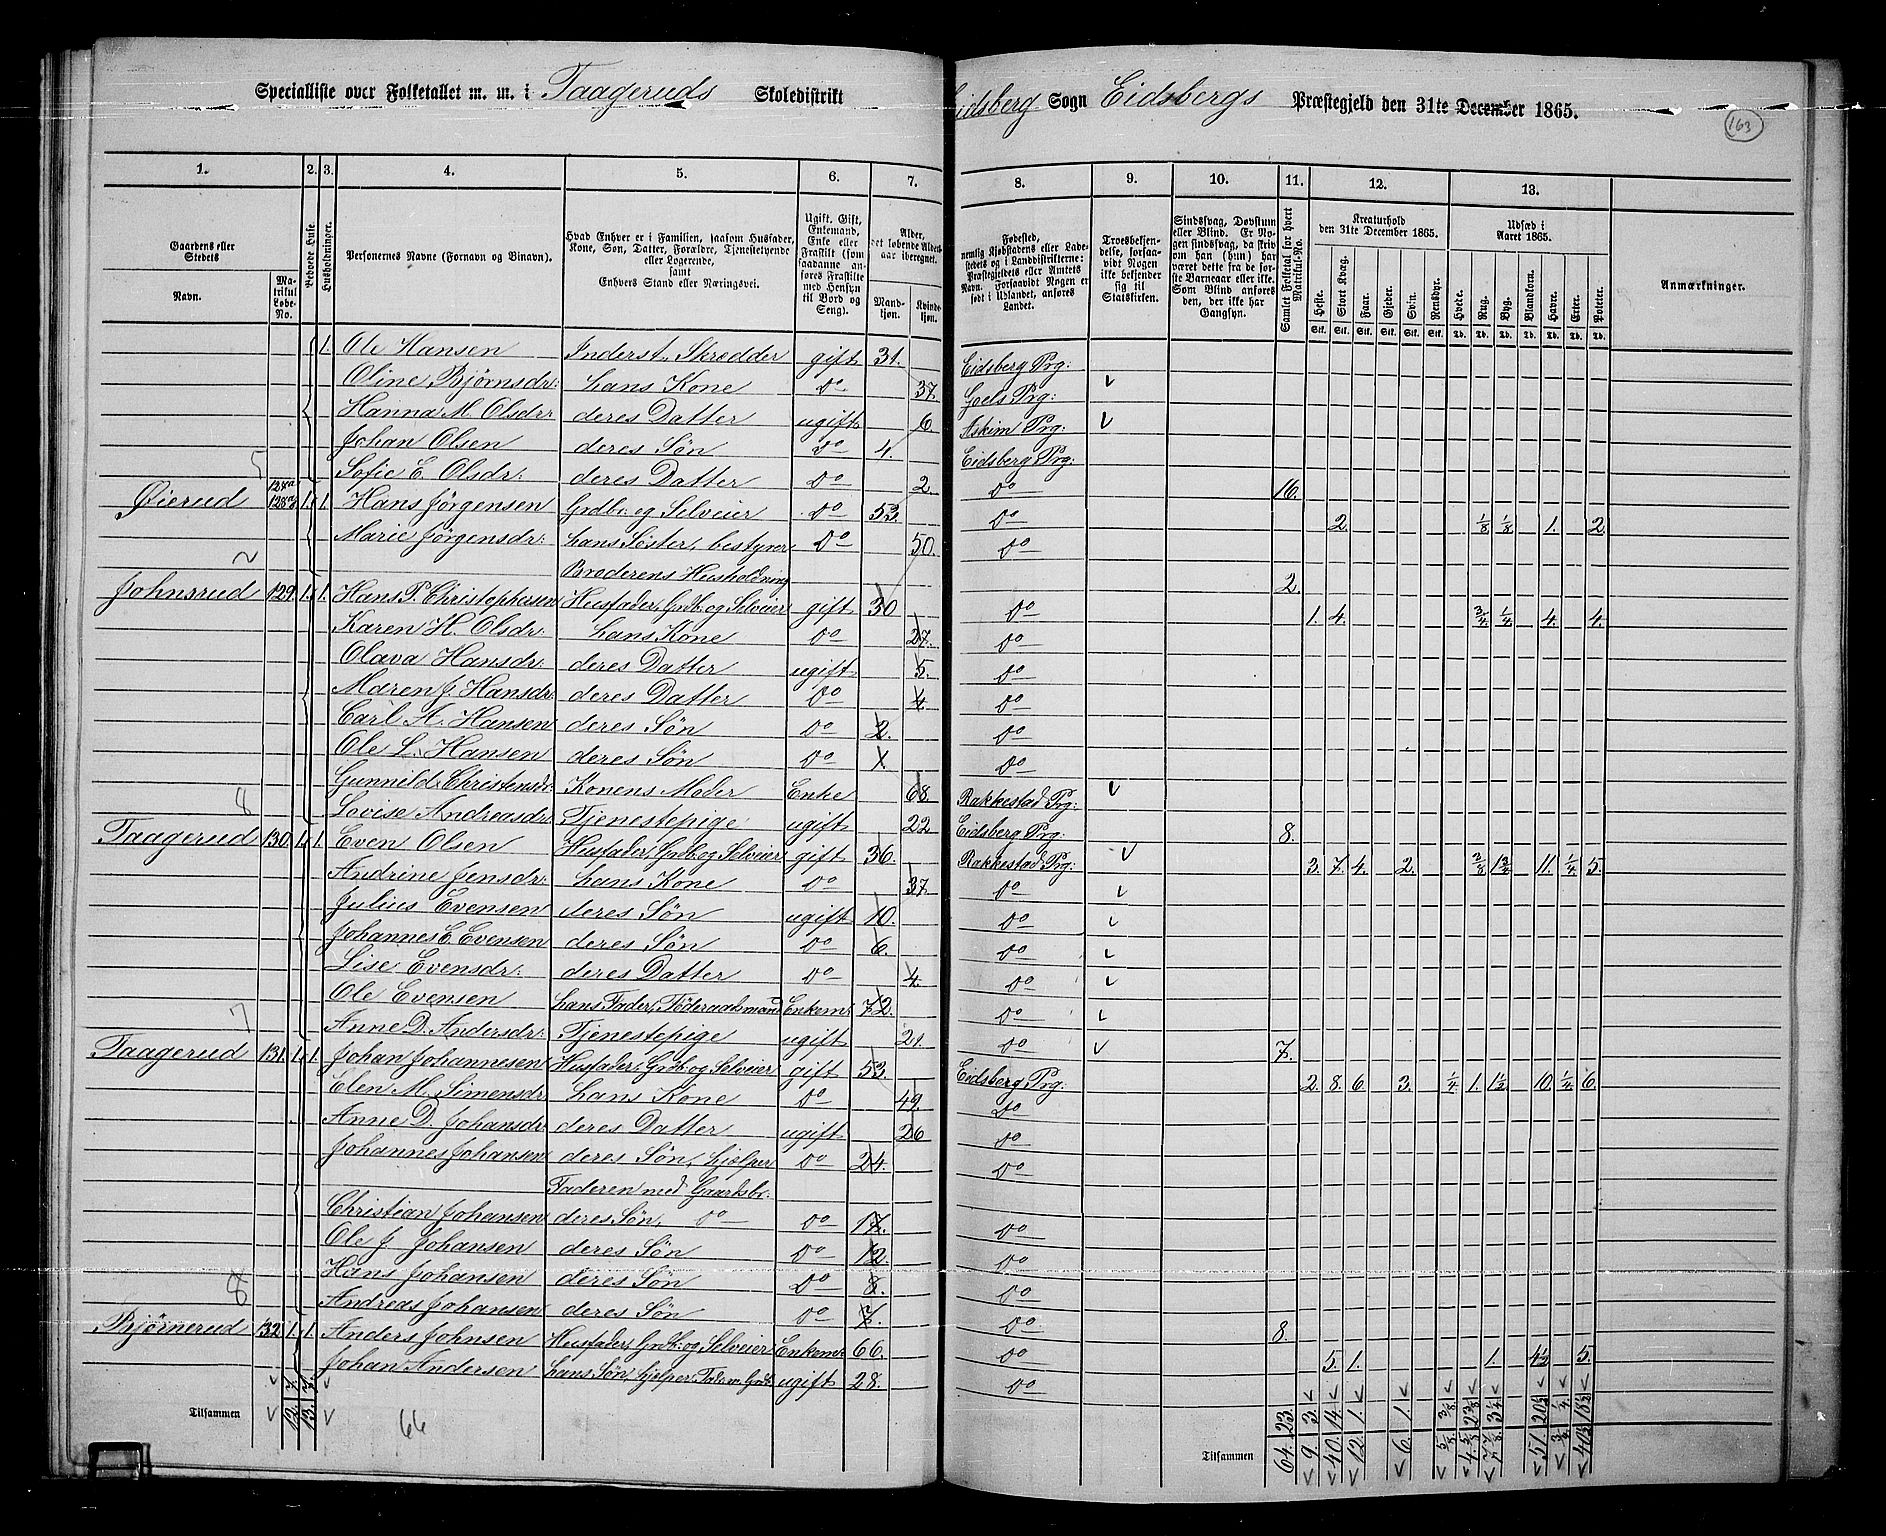 Specialliste over Folketallet m. m. i Taageruds Skoledistrikt Eidsberg Sogn Eidsbergs Præstegjeld den 31te December 1865.
163
1. 2. 3. 4. 5. 6. 7. 8. 9. 10. 11. 12. 13.
Gaardens eller Stedets
Navn.
Matrikul Løbe-No.
Beboede Huse.
Husholdninger.
Personernes Navne (Fornavn og Binavn).
Hvad Enhver er i Familien, saasom Husfader, Kone, Søn, Datter, Forældre, Tjenestetyende eller Logerende, samt Enhvers Stand eller Næringsvei.
Ugift, Gift, Enkemand, Enke eller Fraskilt (som saadanne anføres Fraskilte med Hensyn til Bord og Seng).
Alder, det løbende Alders-aar iberegnet.
Mandkjøn.
Kvindekjøn.
Fødested, nemlig Kjøbstadens eller Ladestedets og i Landdistrikterne: Præstegjeldets eller Amtets Navn. Forsaavidt Nogen er født i Udlandet, anføres Landet.
Troesbekjendelse, forsaavidt Nogen ikke bekjender sig til Statskirken.
Sindssvag, Døvstum eller Blind. Er Nogen sindssvag, da skriv om han (hun) har været dette fra de første Barneaar eller ikke. Som Blind anføres den, der ikke har Gangsyn.
Samlet Folketal for hvert Matrikul-No.
Kreaturhold den 31te December 1865.
Heste. Stort Kvæg. Faar. Gjeder. Svin. Rensdyr.
Udsæd i Aaret 1865.
Hvede. Rug. Byg. Blandkorn. Havre. Erter. Poteter.
Anmærkninger.
1. Ole Hansen Inderst, Skrædder gift 31. Eidsberg Prg:
Oline Bjørnsdr: hans Kone Do 37.
Hanna M. Olsdr: deres Datter ugift 6. Askim Prg:
Johan Olsen deres Søn Do 4. Eidsberg Prg:
5 Sofie E. Olsdr: deres Datter Do 2. Do 16.
Øierud 128a 1. 1. Hans Jørgensen Grdbr. og Selveier Do 53. Do 2. 1/8 1/8 1. 2.
Marie Jørgensdr: hans Søster, bestyrer Do 50. Do
2 Broderens Husholdning 2.
Johnsrud 129. 1. 1. Hans P. Christophersen Husfader, Grdb. og Selveier gift 30 Do 1. 4. 3/4 1/4 4. 4.
Karen H. Olsdr: hans Kone Do 27. Do
Olava Hansdr: deres Datter ugift 5. Do
Maren J. Hansdr: deres Datter Do 4. Do
Carl A. Hansen deres Søn Do 2. Do
Ole L. Hansen deres Søn Do Do
Gunnild Christensdr: Konens Moder Enke 68. Rakkestad Prg:
8 Lovise Andreasdr: Tjenestepige ugift 22 Eidsberg Prg: 8.
Taagerud 130. 1. 1. Even Olsen Husfader, Grdb. og Selveier gift 36. Rakkestad Prg: 3. 7. 4. 2. 11. 1/4 5.
Andrine Jensdr: hans Kone Do 37. Do
Julius Evensen deres Søn ugift 10. Do
Johannes E. Evensen deres Søn Do 6. Do
Lise Evensdr: deres Datter Do 4. Do
Ole Evensen hans Fader, Føderaadsmand Enkem: 72. Do
7 Anne D. Andersdr: Tjenestepige ugift 21. Do 7.
Taagerud 131. 1. 1. Johan Johannesen Husfader, Grdb. og Selveier gift 53. Eidsberg Prg: 2. 8. 6. 3. 1/4 1. 1½ 10. 1/4 6.
Elen M. Simensdr: hans Kone Do 49. Do
Anne D. Johansdr: deres Datter ugift 26 Do
Johannes Johansen deres Søn, hjelper Do 24. Do
Faderen med Gaardsbr:
Christian Johansen deres Søn, Do Do 17. Do
Ole J. Johansen deres Søn Do 12. Do
Hans Johansen deres Søn Do 8. Do
8 Andreas Johansen deres Søn Do 7. Do 8.
Bjørnerud 132. 1. 1. Anders Johnsen Husfader, Grdb. og Selveier Enkem: 66. Do 5. 1. 1. 4½ 5.
Johan Andersen hans Søn, hjelper Faderen ugift 28. Do
Tilsammen 12. 13. 66
Tilsammen 64. 23. 9. 3. 40. 14. 12. 1. 6. 1.